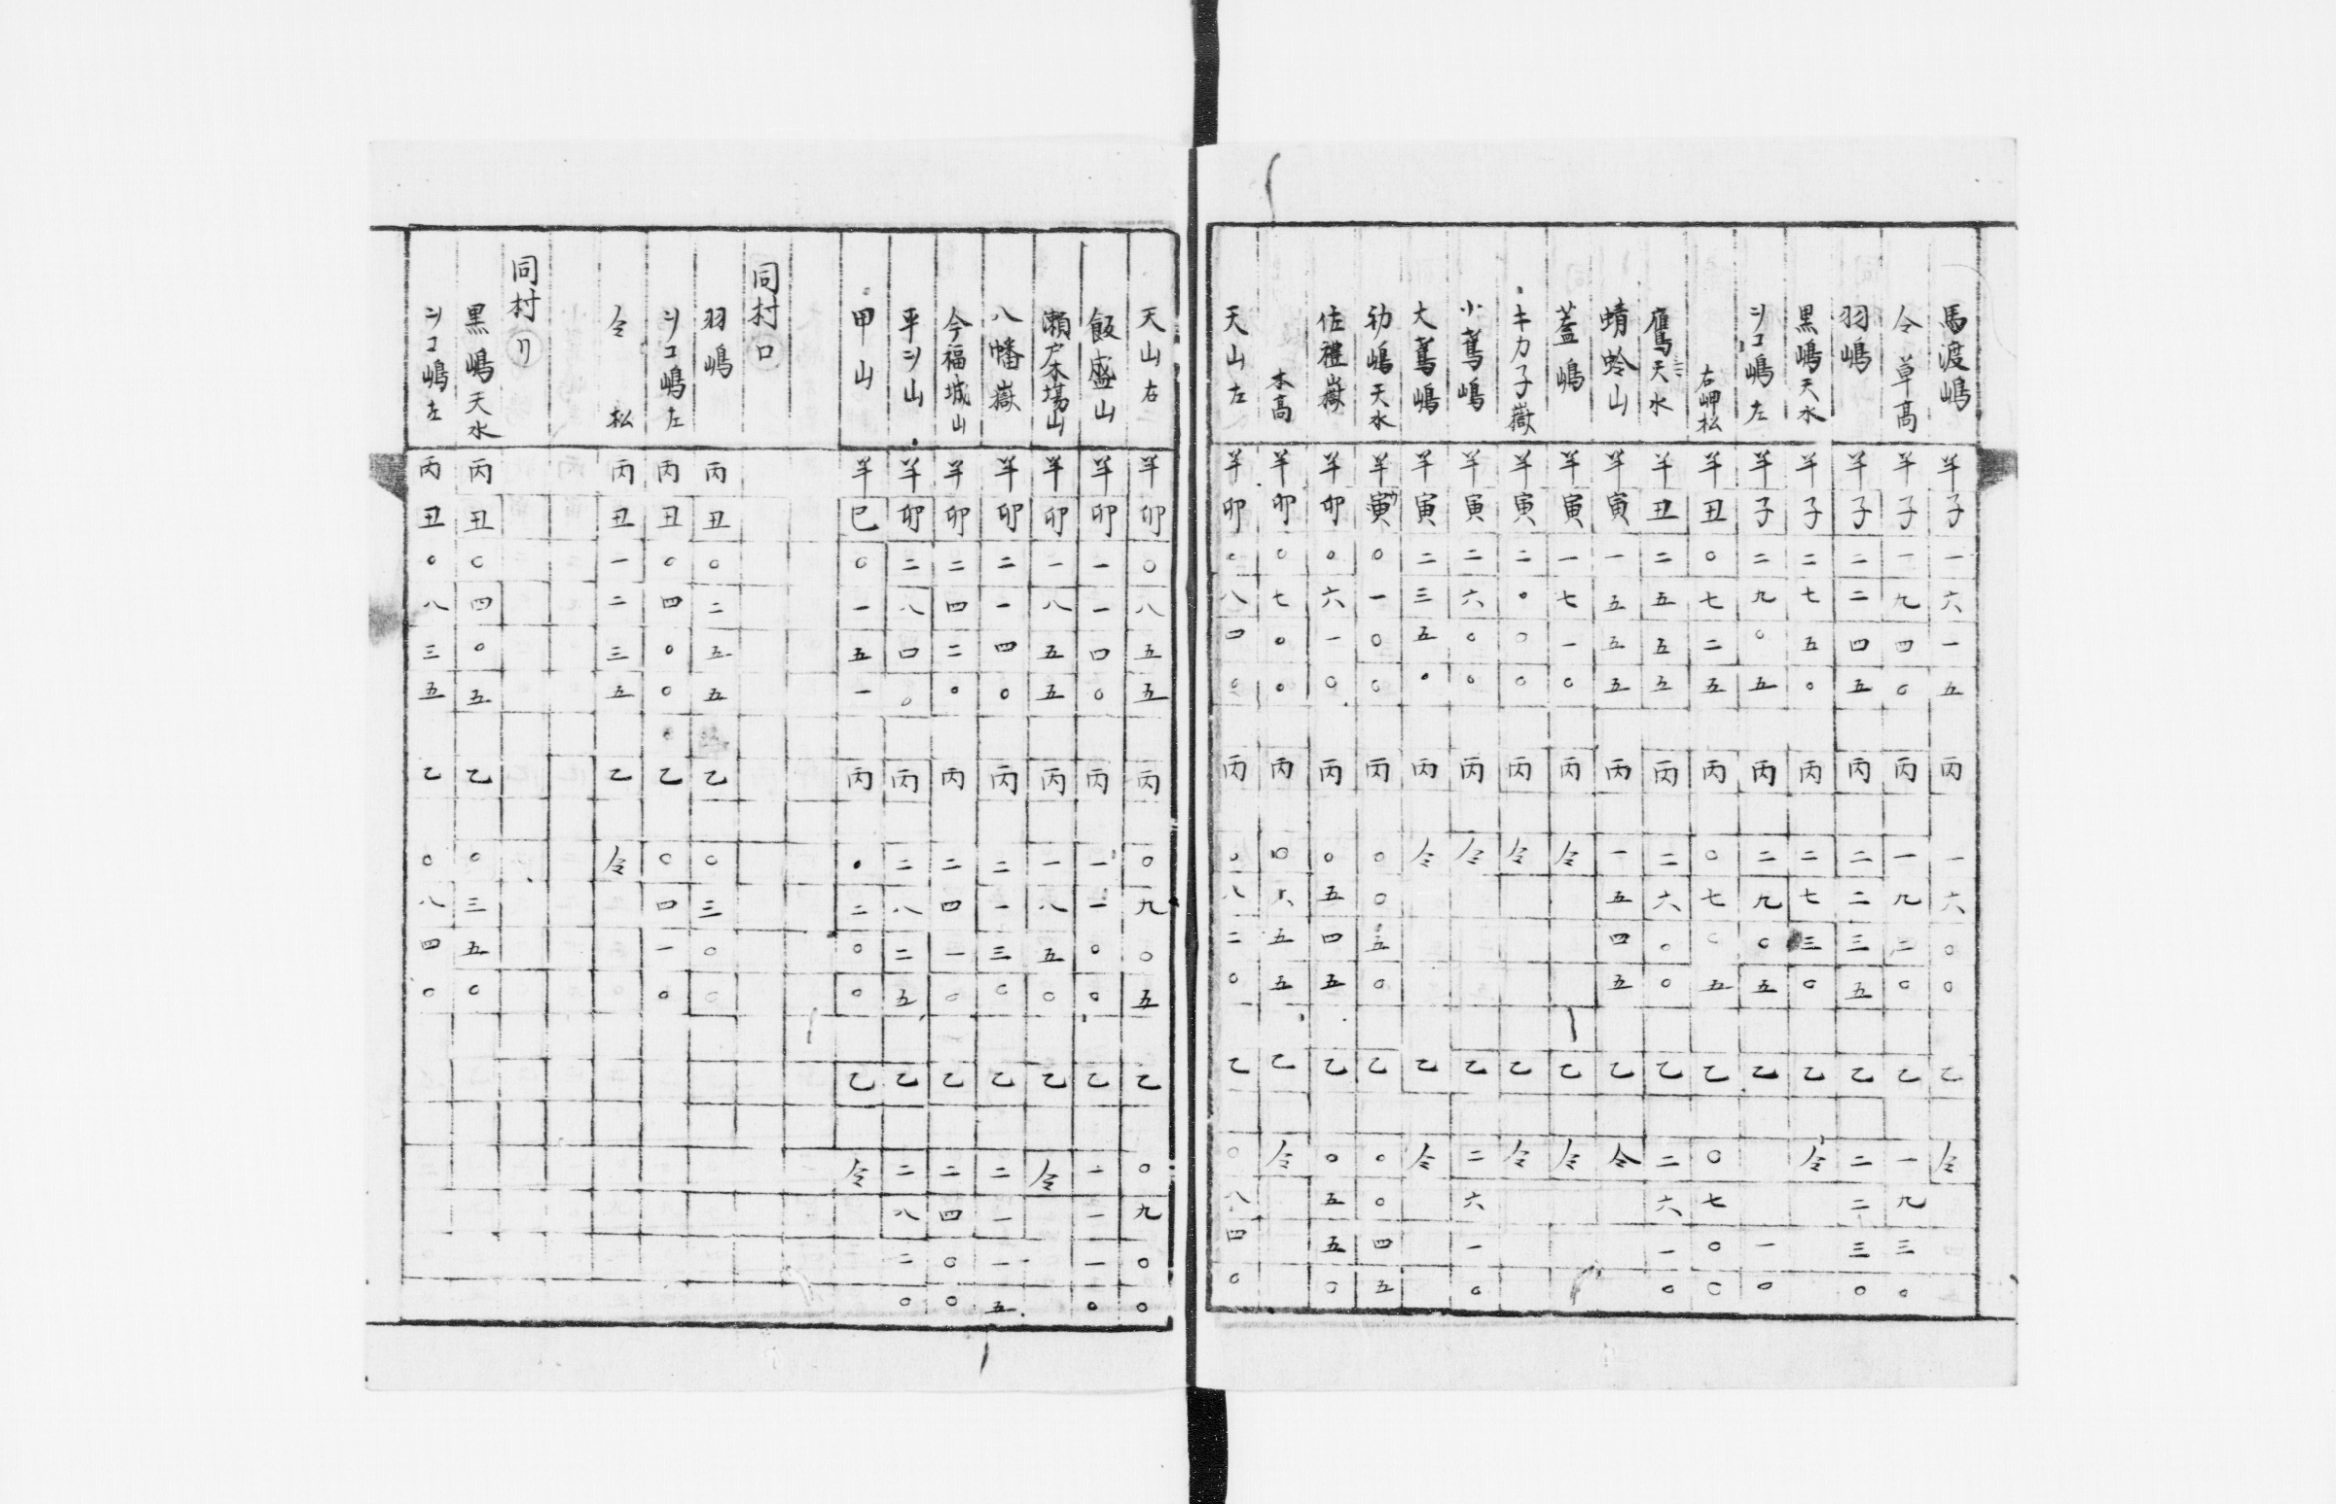 馬渡嶋 羊子一六一五 丙一六〇〇 乙仝
仝 草高 羊子一九四〇 丙一九二〇 乙一九三〇
羽嶋 羊子二二四五 丙二二三五 乙二二三〇
黒嶋天水 羊子二七五〇 丙二七三〇 乙仝
シコ嶋左 羊子二九〇五 丙二九〇五 乙一〇
右岬松 羊丑〇七二五 丙〇七〇五 乙〇七〇〇
鷹天水 羊丑二五五五 丙二六〇〇 乙二六一〇
蜻蛉山 羊寅一五五五 丙一五四五 乙仝
蓋嶋 羊寅一七一〇 丙仝 乙仝
キカ子嶽 羊寅二〇〇〇 丙仝 乙仝
小鴬嶋 羊寅二六〇〇 丙仝 乙二六一〇
大鴬嶋 羊寅二三五〇 丙仝 乙仝
礽嶋天水 羊寅〇一〇〇 丙〇〇五〇 乙〇〇四五
佐禮嶽 羊卯〇六一〇 丙〇五四五 乙〇五五〇
木高 羊卯〇七〇〇 丙〇六五五 乙仝
天山左 羊卯〇八四〇 丙〇八二〇 乙〇八四〇
天山右 羊卯〇八五五 丙〇九〇五 乙〇九〇〇
飯盛山 羊卯一一四〇 丙一一〇〇 乙一一一〇
瀬戸木場山 羊卯一八五五 丙一八五〇 乙仝
八幡嶽 羊卯二一四〇 丙二一三〇 乙二一一五
今福城山 羊卯二四二〇 丙二四一〇 乙二四〇〇
平シ山 羊卯二八四〇 丙二八二五 乙二八二〇
甲山 羊巳〇一五一 丙〇二〇〇 乙仝
同村ロ
羽嶋 丙丑〇二五五 乙〇三〇〇
シコ嶋左 丙丑〇四〇〇 乙〇四一〇
仝 松 丙丑一二三五 乙仝
同村リ
黒嶋天水 丙丑〇四〇五 乙〇三五〇
シコ嶋左 丙丑〇八三五 乙〇八四〇